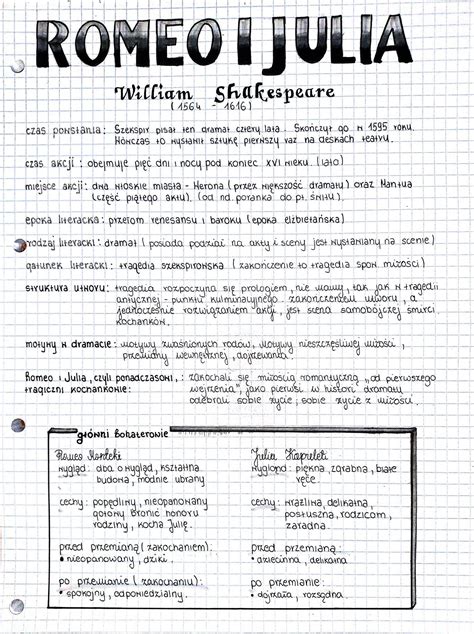 ROMEO I JULIA
William Shakespeare
(1564 - 1616)
czas powstania: Szekspir pisał ten dramat cztery lata. Skończył go w 1595 roku.
Wówczas to wystawił sztukę pierwszy raz na deskach teatru.
czas akcji: obejmuje pięć dni i nocy pod koniec XVI wieku. (lato)
miejsce akcji: dwa włoskie miasta - Werona (przez większość dramatu) oraz Mantua
(część piątego aktu). (od nd. poranka do pt. świtu).
epoka literacka: przełom renesansu i baroku (epoka elżbietańska)
rodzaj literacki: dramat (posiada podział na akty i sceny jest wystawiany na scenie)
gatunek literacki: tragedia szekspirowska (zakończenie to tragedia spow. miłością)
struktura utworu: tragedia rozpoczyna się prologiem, nie mamy, tak jak w tragedii
antycznej - punktu kulminacyjnego. zakończeniem utworu, a
jednocześnie rozwiązaniem akcji, jest scena samobójczej śmierci
kochanków.
motywy w dramacie: motywy zwaśnionych rodów, motywy nieszczęśliwej miłości,
przemiany wewnętrznej, dojrzewania.
Romeo i Julia, czyli ponadczasowi,: zakochali się miłością romantyczną „od pierwszego
tragiczni kochankowie: wejrzenia”, jako pierwsi w historii dramatu
odebrali sobie życie, sobie życie z miłości.
główni bohaterowie
Romeo Monteki
wygląd: dba o wygląd, kształtna
budowa, modnie ubrany
cechy: popędliwy, nieopanowany
gotowy bronić honoru
rodziny, kocha Julię.
przed przemianą (zakochaniem):
• nieopanowany, dziki.
po przemianie (zakochaniu):
• spokojny, odpowiedzialny.
Julia Kapuleti
wygląd: piękna, zgrabna, białe
ręce.
cechy: wrażliwa, delikatna,
posłuszna, rodzicom,
zaradna.
przed przemianą:
• dziecinna, delikatna
po przemianie:
• dojrzała, rozsądna.